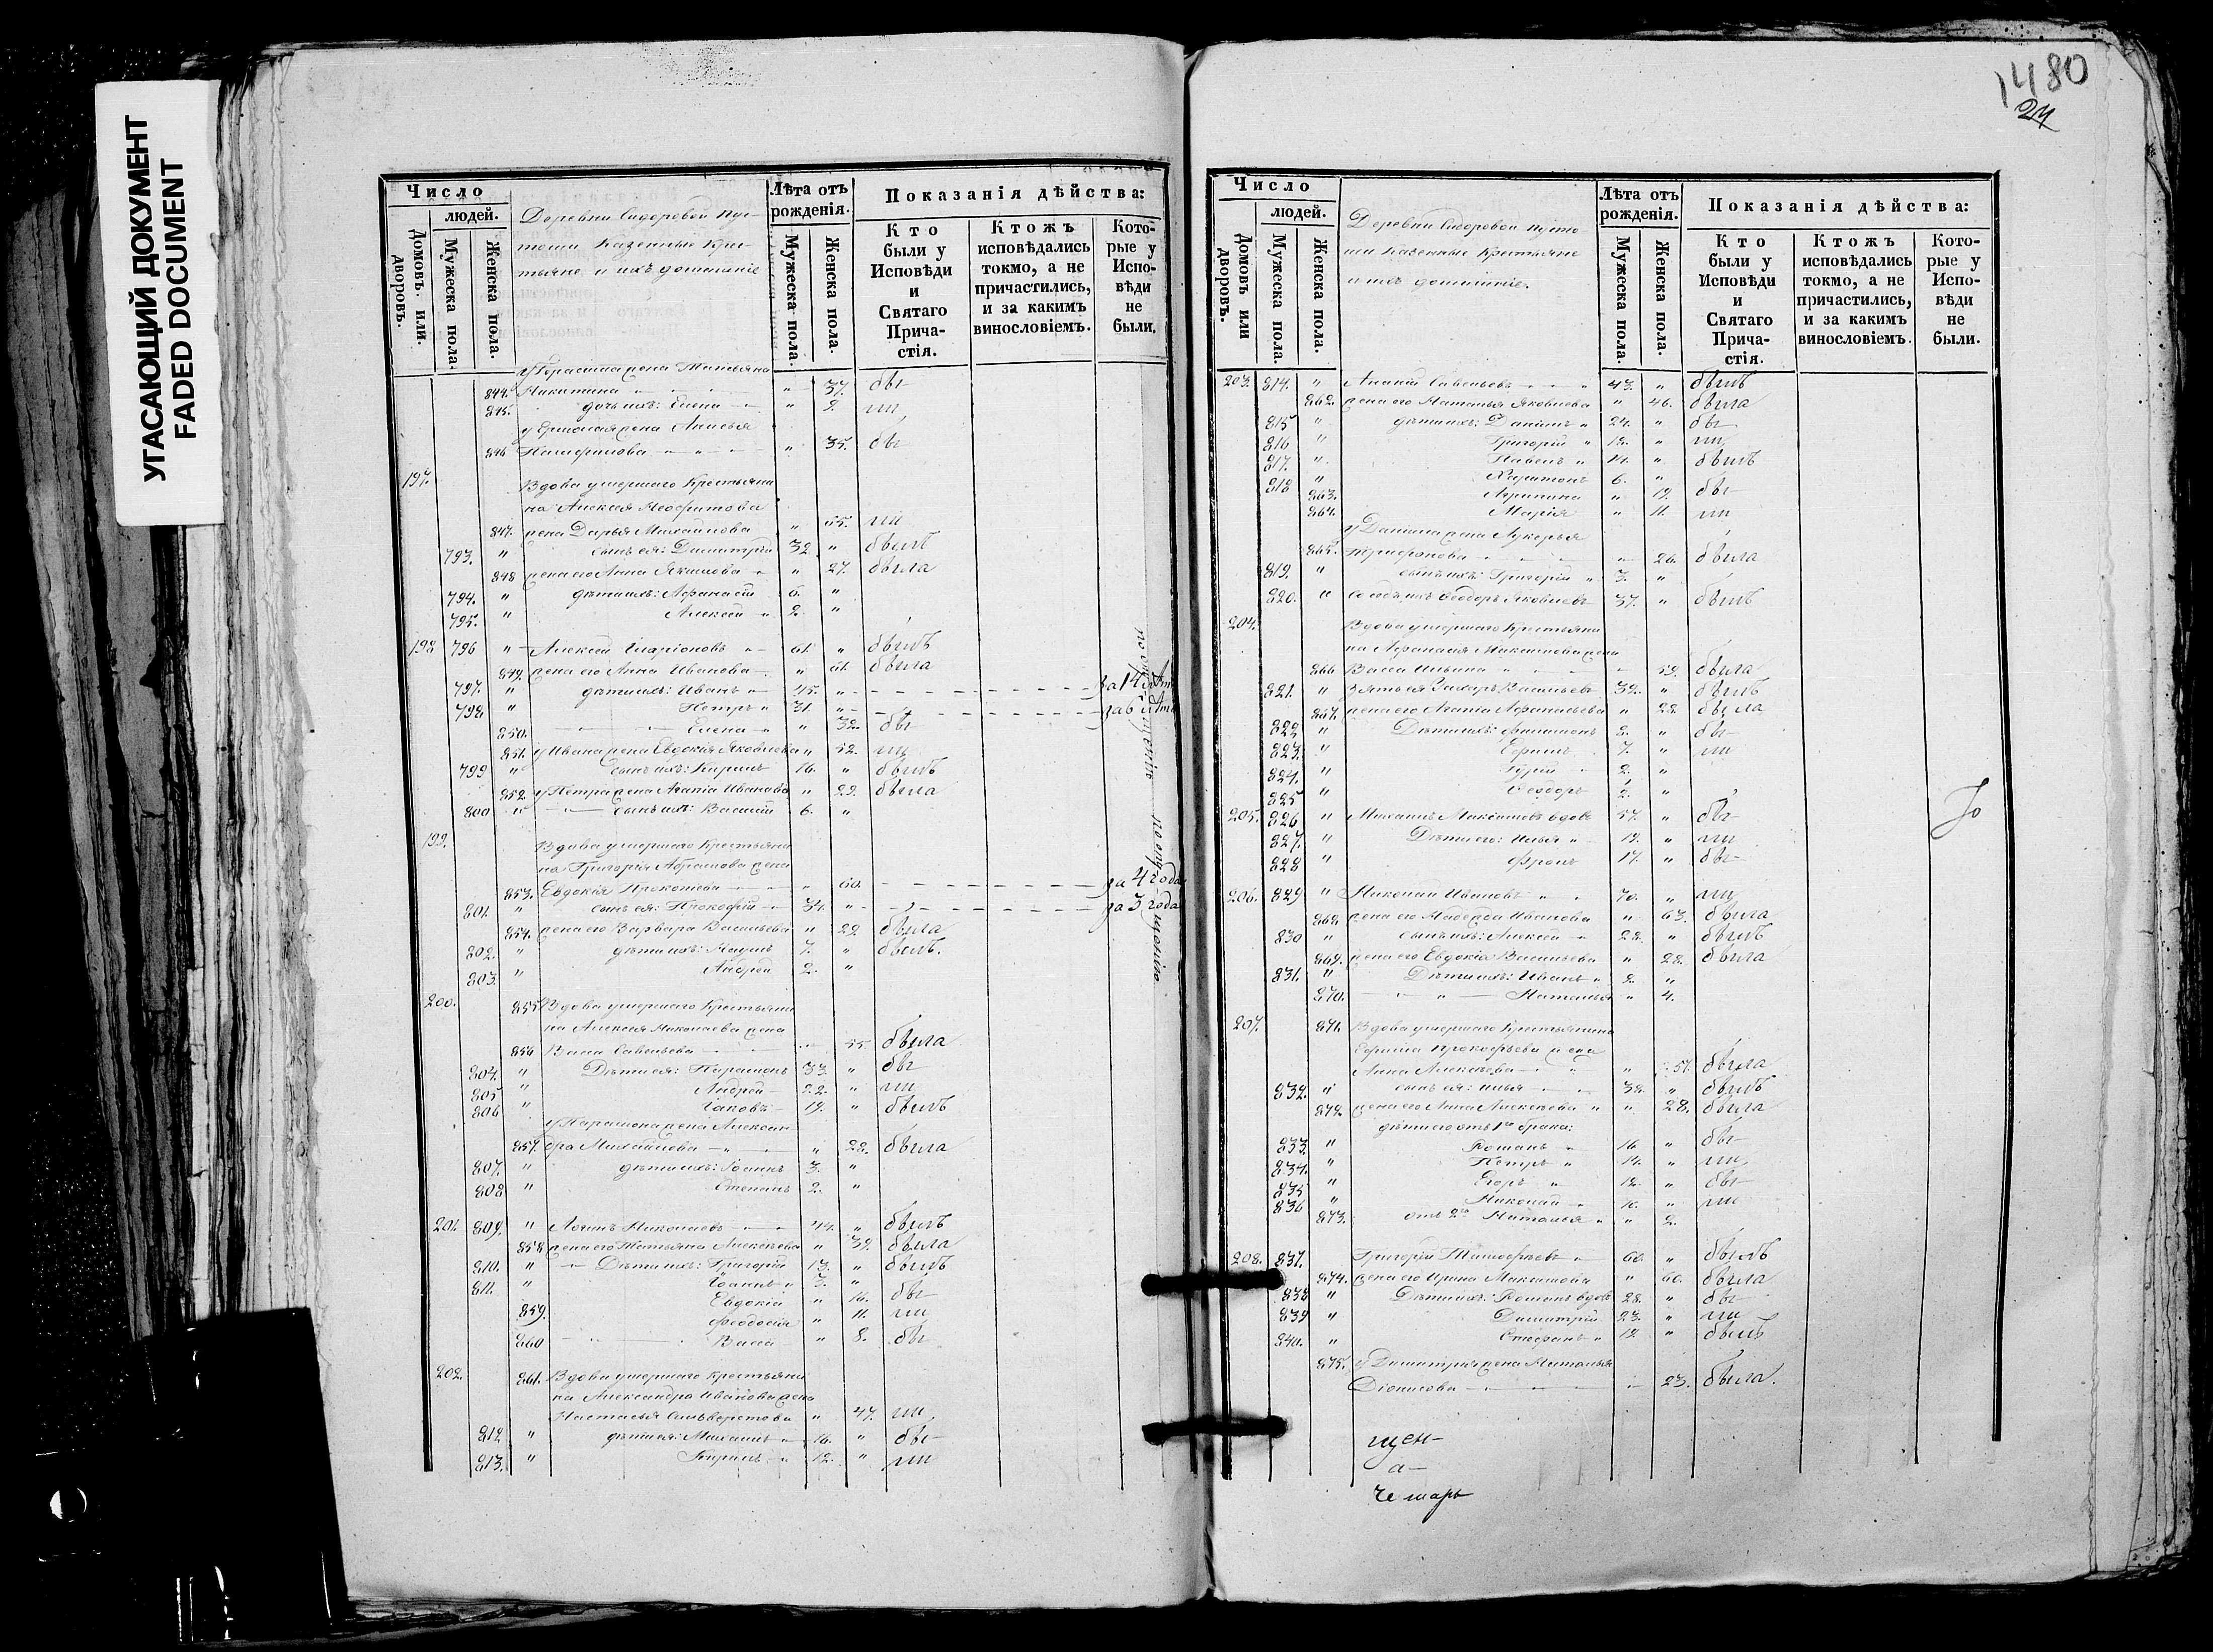 УГАСАЮЩИЙ ДОКУМЕНТ
FADED DOCUMENT
Число
людей.
Домовъ или дворовъ.
Мужеска пола.
Женска пола.
Деревни Сидоровой Пус-
тоши Казенные Крес-
тьяне и ихъ домашніе
Лѣта отъ рожденія.
Мужеска пола.
Женска пола.
Показанія дѣйства:
Кто были у Исповѣди и Святаго Прича-стія.
Ктожъ исповѣдались токмо, а не причастились, и за какимъ винословіемъ.
Кото-рые у Испо-вѣди не были.
у Герасима жена Татьяна
844. Никитина " 37. бы-
845. дочь ихъ: Елена " 9. ли
у Ермолая жена Анисья
846 " 35. бы-
197. Вдова умершаго Крестьяни
на Алексея Неофитова
847. жена Дарья Михайлова " 55. ли
793. " сынъ ея: Димитрій 32. " былъ
848 жена его Анна Якимова " 27. была
794. " дѣти ихъ: Афанасій 6. "
795. " Алексей 2. "
198 796 " Алексей Иларіоновъ 61. " былъ
849. жена его Анна Иванова " 61. была
797. " дѣти ихъ: Иванъ 45. " за 14 лѣтъ
798 " Петръ 31. " за 6 лѣтъ
850. Елена " 32. бы-
851. у Ивана жена Евдокія Яковлева " 52. ли
799 " сынъ ихъ: Кирилъ 16. " былъ
852 у Петра жена Агапія Иванова " 29. была
800 " сынъ ихъ: Василій 6. "
199. Вдова умершаго Крестьяни
на Григорія Абрамова жена
853. Евдокія Прокопева " 60. за 4 года
801. " сынъ ея: Прокофій 34. " за 3 года
854. жена его Варвара Васильева " 29. была
802. " дѣти ихъ: 7. " былъ.
803. " Андрей 2. "
200. 855. Вдова умершаго Крестьяни
на Алексея Николаева жена
856 Васа Савельева 55. была
804. " Дѣти ея: Парамонъ 33. " бы-
805 " Андрей 22. " ли
806 " Іаковъ 19. " былъ
у Парамона жена Алексан
857. дра Михайлова " 28. была
807. " дѣти ихъ: Іоаннъ 3. "
808 " Степанъ 2. "
201. 809. " Логинъ Николаевъ 44. " былъ
858 жена его Татьяна Алексѣева " 39. была
810. " Дѣти ихъ: Григорій 13. " былъ
811. " Іоаннъ 3. "
Евдокія " 16. бы-
859. Феодосія " 11. ли
860 Васса " 8. бы-
202. 861. Вдова умершаго Крестьяни
на Александра Иванова жена
Настасья Сильверстова " 47. ли
812 " дѣти ея: Михаилъ 16. " бы-
813. " Кирилъ 12. " ли
1480
24
Число
людей.
Домовъ или дворовъ.
Мужеска пола.
Женска пола.
Деревни Сидоровой Пусто-
ши Казенные Крестьяне
и ихъ домашніе.
Лѣта отъ рожденія.
Мужеска пола.
Женска пола.
Показанія дѣйства:
Кто были у Исповѣди и Святаго Прича-стія.
Ктожъ исповѣдались токмо, а не причастились, и за какимъ винословіемъ.
Кото-рые у Испо-вѣди не были.
203. 814. " Ананій Савельевъ 43. " былъ
862. жена его Наталья Яковлева " 46. была
815 " дѣти ихъ: Даніилъ 24. " бы-
816 " Григорій 18. " ли
817. " Павелъ 14. " былъ
818 " Харитонъ 6. "
863. Агрипина " 19. бы-
864. Марія " 11. ли
у Даніила жена Лукерья
865. Трифонова 26. была
819. " сынъ ихъ: Григорій 3. "
820. " Ѳеодоръ Яковлевъ 37. " былъ
204. Вдова умершаго Крестьяни
на Афанасія Максимова жена
866 Васса Ильина 59. была
821. " Зять ея Захаръ Васильевъ 32. " былъ
867. жена его Агапія Афанасьева " 28. была
822 " Дѣти ихъ: Филимонъ 8. " бы-
823. " Ефимъ 7. " ли
824. " Гурій 2. "
825 " Ѳеодоръ 2. "
205. 826 " Михаилъ Максимовъ вдовъ 57. " бы-
827. " Дѣти его: Илья 19. " ли
828 " Фролъ 17. " бы-
206. 829 " Николай Ивановъ 70. " ли
868. жена его Надежда Иванова " 63. была
830 " сынъ ихъ: Алексей 28. " былъ
869. жена его Евдокія Васильева " 28. была
831. " Дѣти ихъ: Иванъ 8. "
870. Наталья " 4.
207. 871. Вдова умершаго Крестьянина
Ефима Прокофьева жена
Анна Алексѣева " 57. была
832. " сынъ ея: Илья 38. " былъ
872. жена его Анна Алексѣева " 28. была
дѣти его отъ 1го брака:
833. " Романъ 16. " бы-
834. " Петръ 14. " ли
835 " Егоръ 12. " бы-
836 " Николай 10. " ли
873. отъ 2го Наталья " 2.
208. 837. Григорій Тимофѣевъ 60. " былъ
874. жена его Ирина Максимова " 60. была
838 " Дѣти ихъ: Романъ вдовъ 28. " бы-
839 " Димитрій 23. " ли
840. " Стефанъ 19. " былъ
875. у Димитрія жена Наталья
Діонисова 23. была.
щен-
а-